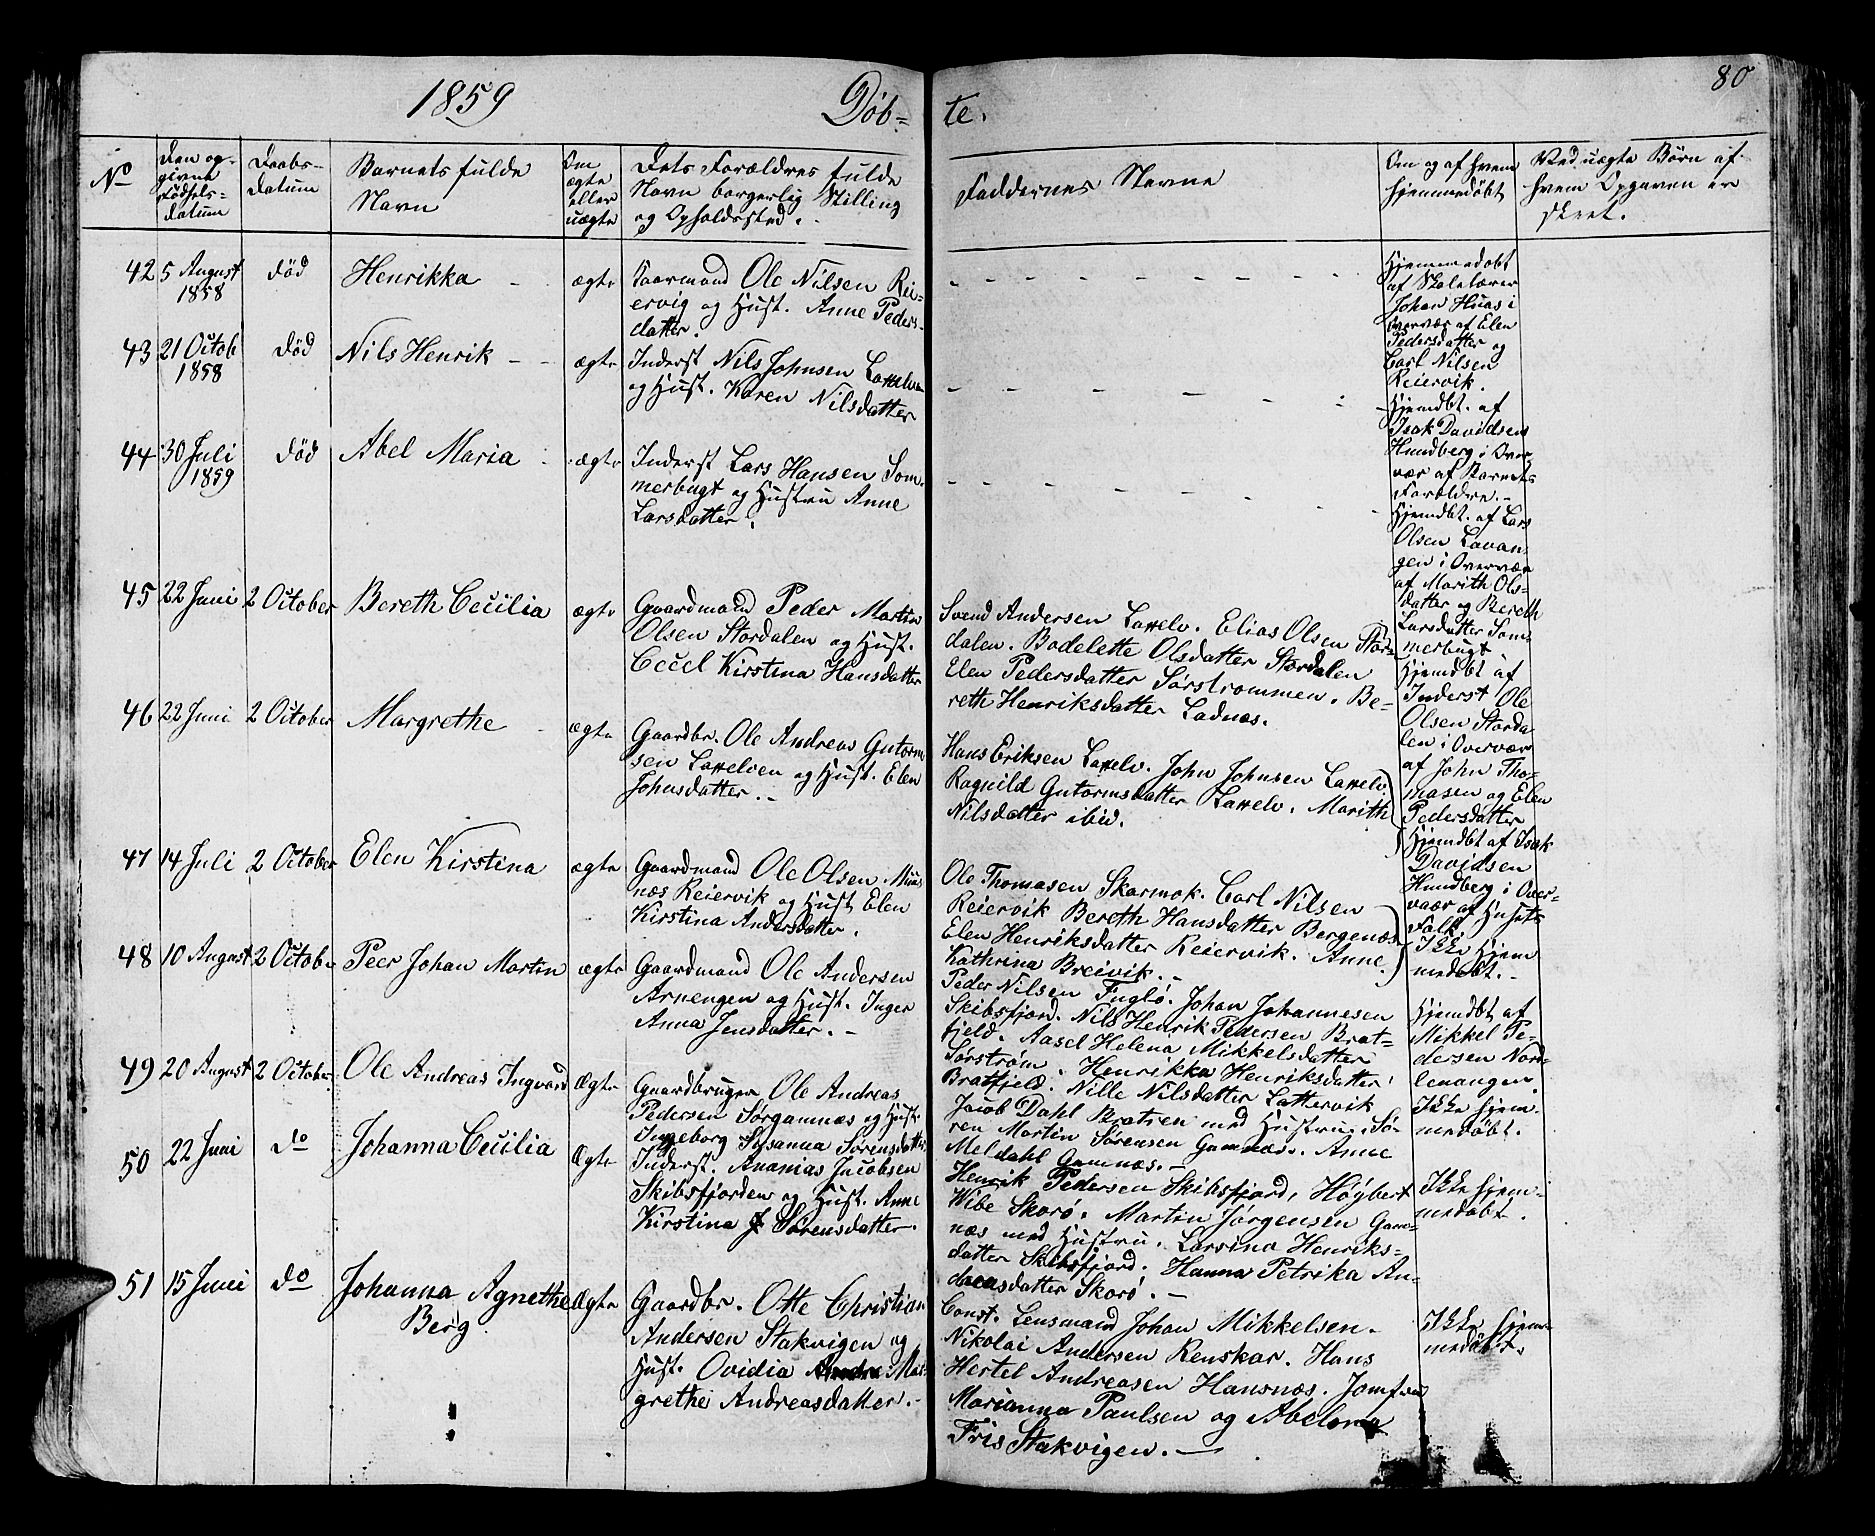 1859
Døb-
te.
80
No
Den op-
givne
Fødsels-
datum
Daabs-
datum
Barnets fulde
Navn
Om
ægte
eller
uægte
Dets Forældres fulde
Navn borgerlig Stilling
og Opholdssted.
Faddernes Navne
Om og af hvem
hjemmedøbt
Ved uægte Børn af
hvem Opgaven er
skeet.
42
5 August
1858
død
Henrikka
ægte
Gaarmand Ole Nilsen Rei-
ervig og Hust. Anne Peders-
datter.
Hjemmedøbt
af Skolelærer
Johan Huas i
Overvær af Elen
Pedersdatter og
Carl Nilsen
Reiervik.
43
21 Octob
1858
død
Nils Henrik
ægte
Inderst Nils Johnsen Laxelven
og Hust. Karen Nilsdatter
Hjemdbt. af
Isak Davidsen
Hundberg i Over-
vær af Barnets
Forældre.
44
30 Juli
1859
død
Abel Maria
ægte
Inderst Lars Hansen Som-
merbugt og Hustru Anne
Larsdatter.
Hjemdbt. af Lars
Olsen Lavan-
gen i Overvær
af Marith Ols-
datter og Bereth
Larsdatter Som-
merbugt
45
22 Juni
2 October
Bereth Cecilia
ægte
Gaardmand Peder Martin
Olsen Stordalen og Hust.
Cecil Kirstina Hansdatter
Svend Andersen Laxelv. Elias Olsen Stor-
dalen. Bodelette Olsdatter Stordalen
Elen Pedersdatter Sørstrommen. Be-
reth Henriksdatter Ladnæs.
Hjemdbt af
Inderst Ole
Olsen Storda
len i Overvær
af John Tho-
masen og Elen
Pedersdatter
46
22 Juni
2 October
Margrethe
ægte
Gaardbr. Ole Andreas Gutorm
sen Laxelven og Hust. Elen
Johnsdatter.
Hans Eriksen Laxelv. John Johnsen Laxelv.
Ragnild Gutormsdatter Laxelv. Marith
Nilsdatter ibid.
Hjemdbt af Isak
Davidsen
Hundberg i Over-
vær af Husets
Folk.
47
14 Juli
2 October
Elen Kirstina
ægte
Gaardmand Ole Olsen
næs Reiervik og Hust Elen
Kirstina Andersdatter.
Ole Thomasen Skarmok. Carl Nilsen
Reiervik Bereth Hansdatter Bergenæs
Elen Henriksdatter Reiervik. Anne
Kathrina Breivik.
Ikke Hjem
medøbt.
48
10 August
2 October
Peer Johan Martin
ægte
Gaardmand Ole Andersen
Arnengen og Hust. Inger
Anna Jensdatter.
Peder Nilsen Fuglø. Johan Johannesen
Skibsfjord. Nils Henrik Pedersen Brat-
fjeld. Aasel Helena Mikkelsdatter
Sørstrøm. Henrikka Henriksdatter
Bratfjeld. Nille Nilsdatter Lattervik
Hjemdbt af
Mikkel Pe-
dersen Nord-
lenangen.
49
20 August
2 October
Ole Andreas Ingvard
Ægte
Gaardbruger Ole Andreas
Pedersen Sørgamnæs og Hust.
Ingeborg Susanna Sørensdatter
Jacob Dahl Bratrein med Hustru. Sø-
ren Martin Sørensen Gamnæs. Anne
Meldahl Gamnæs.
Ikke hjem-
medøbt.
50
22 Juni
do
Johanna Cecilia
Ægte
Inderst. Ananias Jacobsen
Skibsfjorden og Hust. Anne
Kirstina Sørensdatter.
Henrik Pedersen Skibsfjord, Høybert
Wibe Skorø. Martin Jørgensen Gam-
næs med Hustru. Larsina Henriks-
datter Skibsfjord. Hanna Petrika An-
dreasdatter Skorø.
Ikke hjem-
medøbt.
51
15 Juni
do
Johanna Agnethe
Berg
Ægte
Gaardbr. Otte Christian
Andersen Stakvigen og
Hust. Ovidia Mar-
grethe Andreasdatter.
Const. Lensmand Johan Mikkelsen.
Nikolai Andersen Renskar. Hans
Hertel Andreasen Hansnæs. Jomfru
Marianna Paulsen og Abelona
Fris Stakvigen.
Ikke hjem-
medøbt.